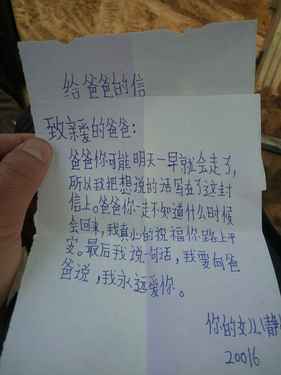 给爸爸的信
致亲爱的爸爸:
爸爸你可能明天一早就会走了,
所以我把想说的话写在了这封
信上。爸爸你一走不知道什么时候
会回来,我真心的祝福你路上平
安。最后我说一句话,我要向爸
爸说,我永远爱你。
你的女儿(静
20016